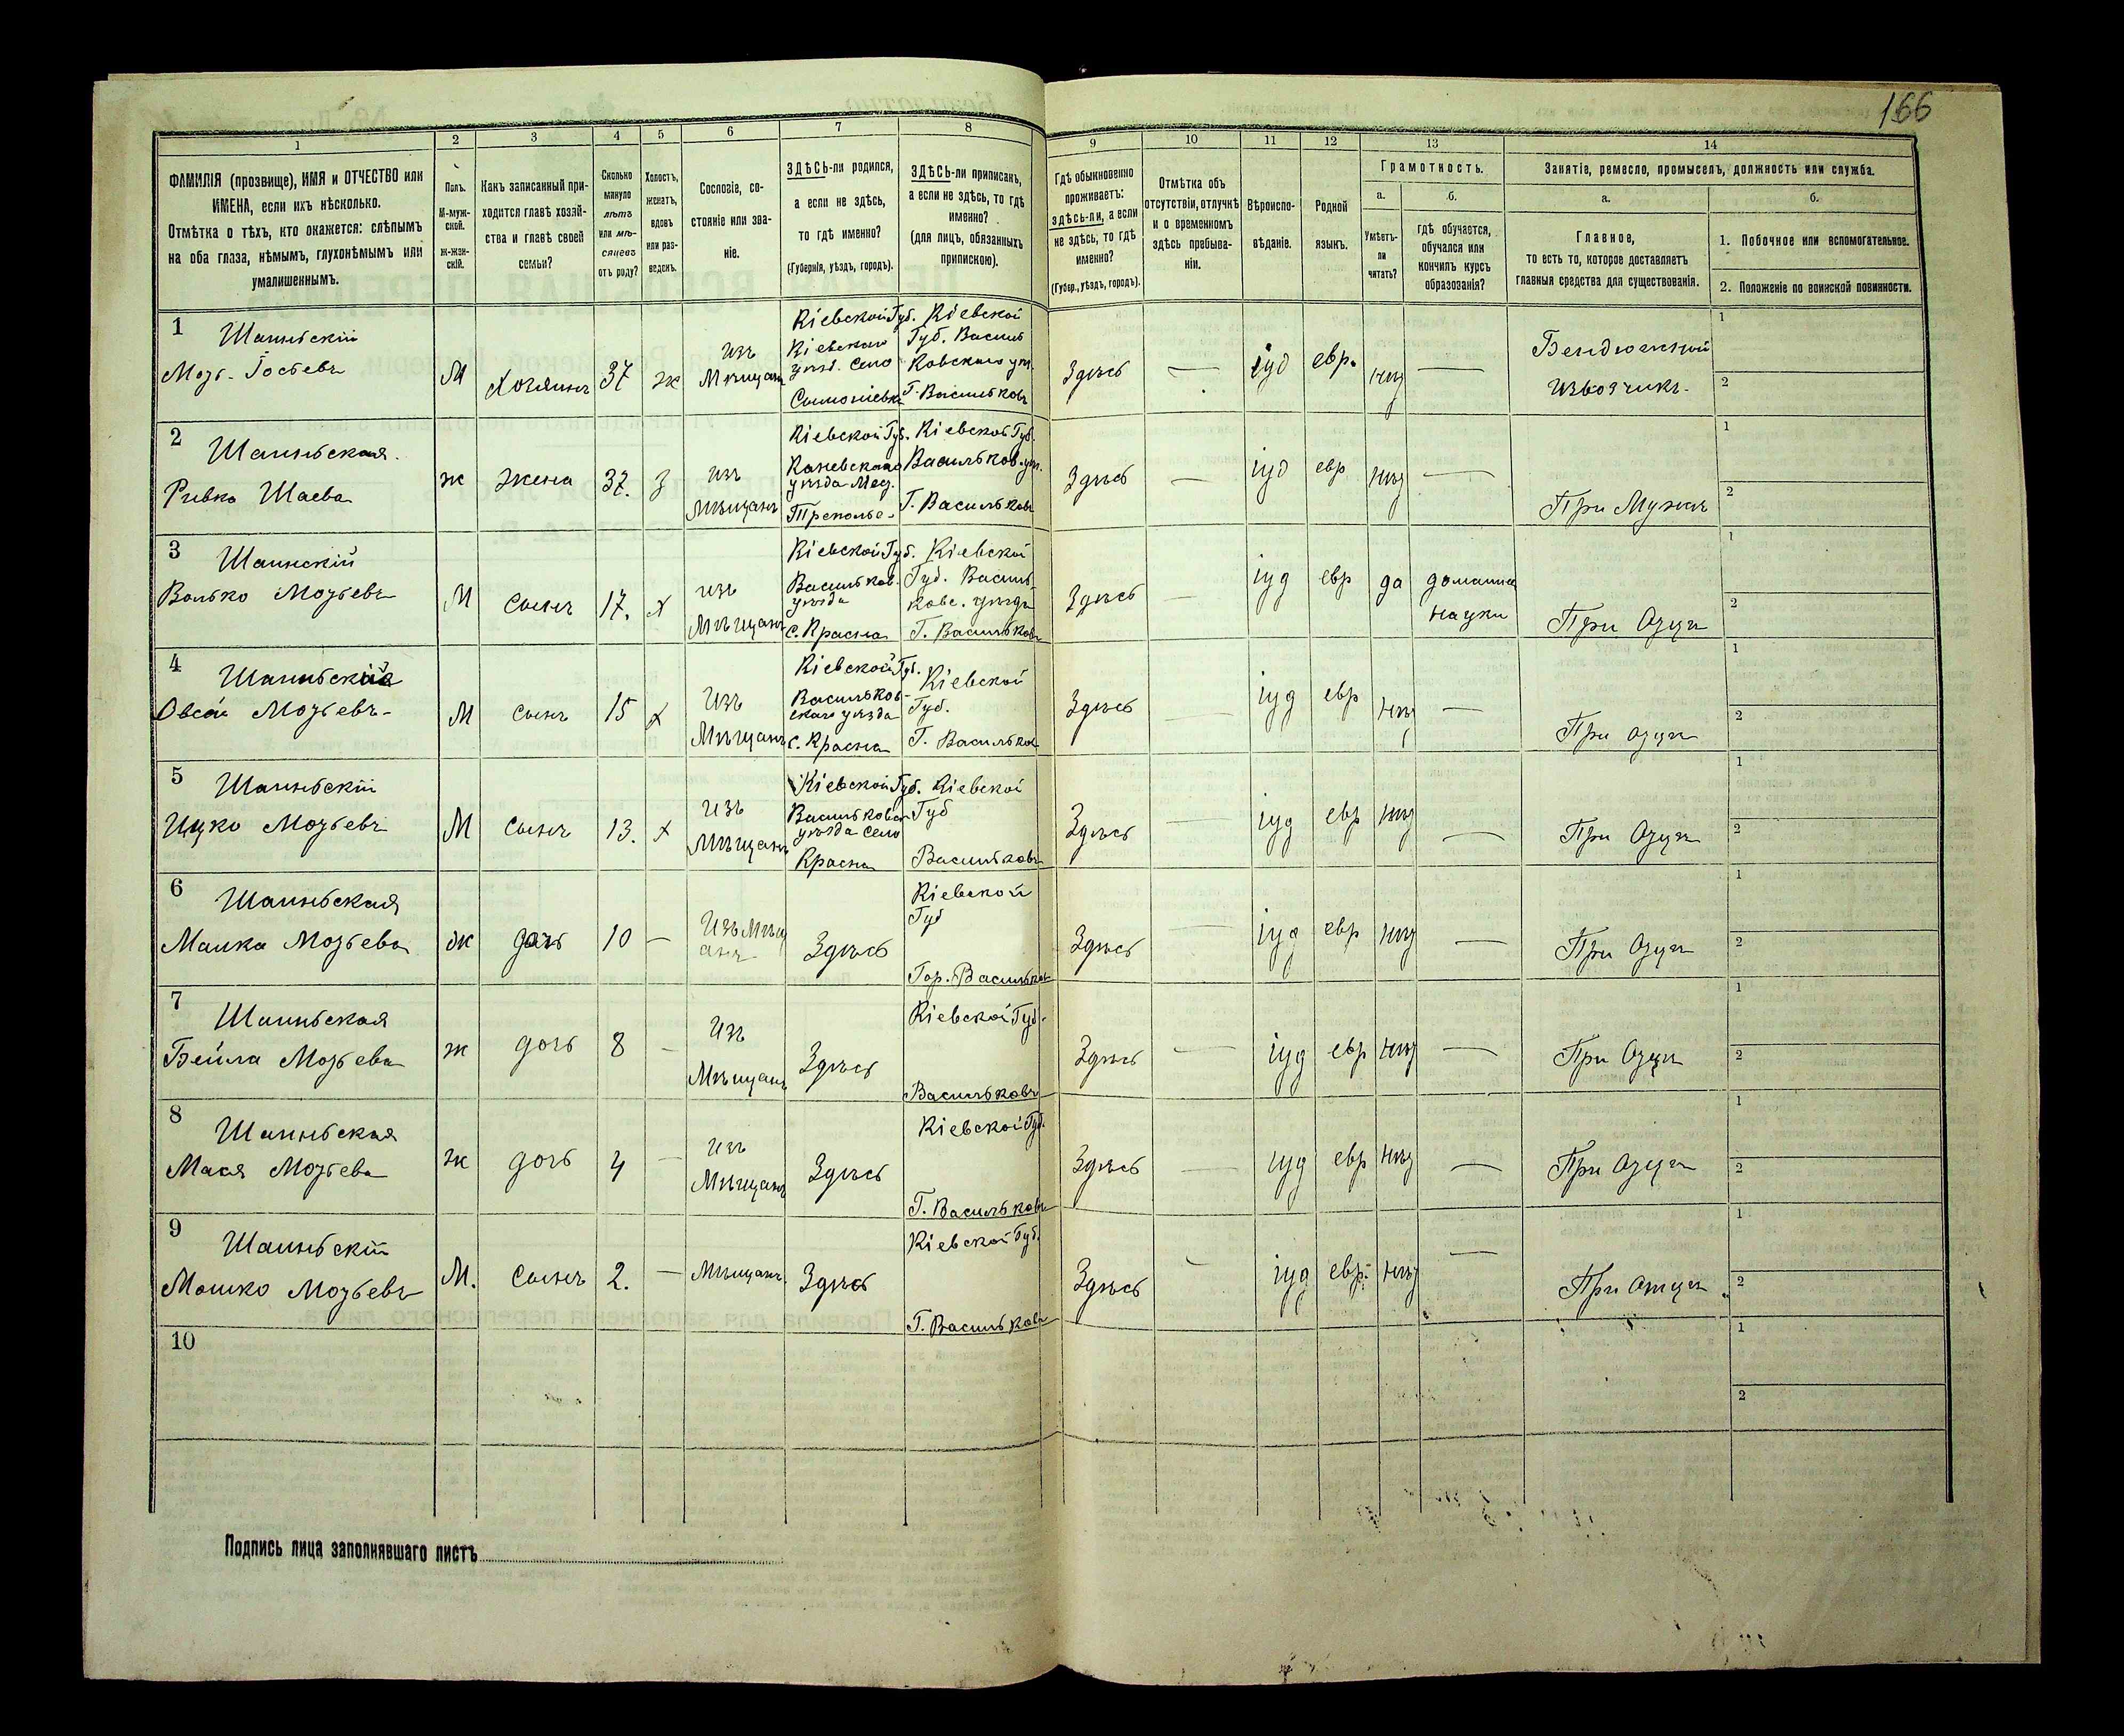 166
1
2
3
4
5
6
7
8
9
10
11
12
13
14
ФАМИЛІЯ (прозвище), ИМЯ и ОТЧЕСТВО или
ИМЕНА, если ихъ нѣсколько.
Отмѣтка о тѣхъ, кто окажется: слѣпымъ
на оба глаза, нѣмымъ, глухонѣмымъ или
умалишеннымъ.
Полъ.
М-муж-
ской.
ж-жен-
скій.
Какъ записанный при-
ходится главѣ хозяй-
ства и главѣ своей
семьи?
Сколько
минуло
лѣтъ
или мѣ-
сяцевъ
отъ роду?
Холостъ,
женатъ,
вдовъ
или раз-
веденъ.
Сословіе, со-
стояніе или зва-
ніе.
ЗДѢСЬ-ли родился,
а если не здѣсь,
то гдѣ именно?
(Губернія, уѣздъ, городъ).
ЗДѢСЬ-ли приписанъ,
а если не здѣсь, то гдѣ
именно?
(для лицъ, обязанныхъ
припискою).
Гдѣ обыкновенно
проживаетъ:
здѣсь-ли, а если
не здѣсь, то гдѣ
именно?
(Губер., уѣздъ, городъ).
Отмѣтка объ
отсутствіи, отлучкѣ
и о временномъ
здѣсь пребыва-
ніи.
Вѣроиспо-
вѣданіе.
Родной
языкъ.
Грамотность.
а.
Умѣетъ-
ли
читать?
б.
гдѣ обучается,
обучался или
кончилъ курсъ
образованія?
Занятіе, ремесло, промыселъ, должность или служба.
а.
Главное,
то есть то, которое доставляетъ
главныя средства для существованія.
б.
1. Побочное или вспомогательное.
2. Положеніе по воинской повинности.
1
Шаиньскій
М
Хозяинъ
37
ж
Изъ
Мѣщанъ
Кіевской Губ.
Кіевскаго
уѣзд. Село
Кіевской
Губ. Василь
ковскаго уѣз.
Г. Васильковъ
Здѣсь
—
іуд
евр.
нѣт
—
Бендюжный
Извозчикъ.
1
2
2
Шаиньская.
Ривка Шаева
ж
Жена
37.
З
изъ
Мѣщанъ
Кіевской Губ.
Каневскаго
уѣзда Мес.
Кіевской Губ.
Васильков. уѣз.
Г. Васильковъ
Здѣсь
—
іуд
евр
нѣт
—
При Мужѣ
1
2
3
Шаинскій
Волько Мозьевъ
М
Сынъ
17.
х
изъ
Мѣщанъ
Кіевской Губ.
Васильков.
уѣзда
с. Красна
Кіевской
Губ. Василь-
ковс. уѣздъ
Г. Васильковъ
Здѣсь
—
іуд
евр
да
домашн
науки
При Оцци
1
2
4
Мозьевъ
М
сынъ
15
х
Изъ
Мѣщанъ
Кіевской Губ.
Васильков-
скаго уѣзда
с. Красна
Кіевской
Губ.
Г. Васильков
Здѣсь
—
іуд
евр
нѣт
—
При оцци
1
2
5
Шаиньскій
Ицко Мозьевъ
М
сынъ
13.
х
изъ
Мѣщанъ
Кіевской Губ.
Васильковск
уѣзда село
Красна
Кіевской
Губ
Васильковъ
Здѣсь
—
іуд
евр
нѣт
—
При Оцци
1
2
6
Шаиньская
Малка Мозьева
ж
дочь
10
—
Изъ Мѣщ
анъ
Здѣсь
Кіевской
Губ
Гор. Васильков
Здѣсь
—
іуд
евр
нѣт
—
При Оцци
1
2
7
Шаиньская
Бейла Мозьева
ж
дочь
8
—
Изъ
Мѣщанъ
Здѣсь
Кіевской Губ.
Васильковъ
Здѣсь
—
іуд
евр
нѣт
—
При Оцци
1
2
8
Шаиньская
Мася Мозьева
ж
дочь
4
—
изъ
Мѣщанъ
Здѣсь
Кіевской Губ.
Г. Васильковъ
Здѣсь
—
іуд
евр
нѣт
—
При Оцци
1
2
9
Шаиньскій
Мошко Мозьевъ
М.
Сынъ
2.
—
Мѣщанъ.
Здѣсь
Кіевской Губ.
Г. Васильковъ
Здѣсь
—
іуд
евр.
нѣт
—
При Отци
1
2
10
1
2
Подпись лица заполнявшаго листъ